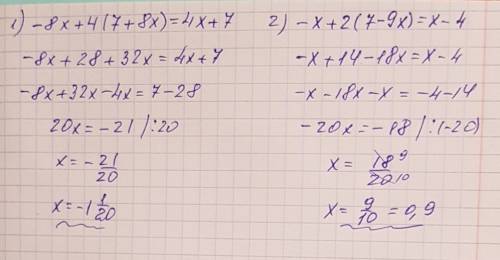 1) -8x+4(7+8x)=4x+7
-8x+28+32x=4x+7
-8x+32x-4x=7-28
20x=-21 /:20
x=-21/20
x=-1 1/20
2) -x+2(7-9x)=x-4
-x+14-18x=x-4
-x-18x-x=-4-14
-20x=-18 /:(-20)
x= 18 9/20 10
x= 9/10 = 0,9